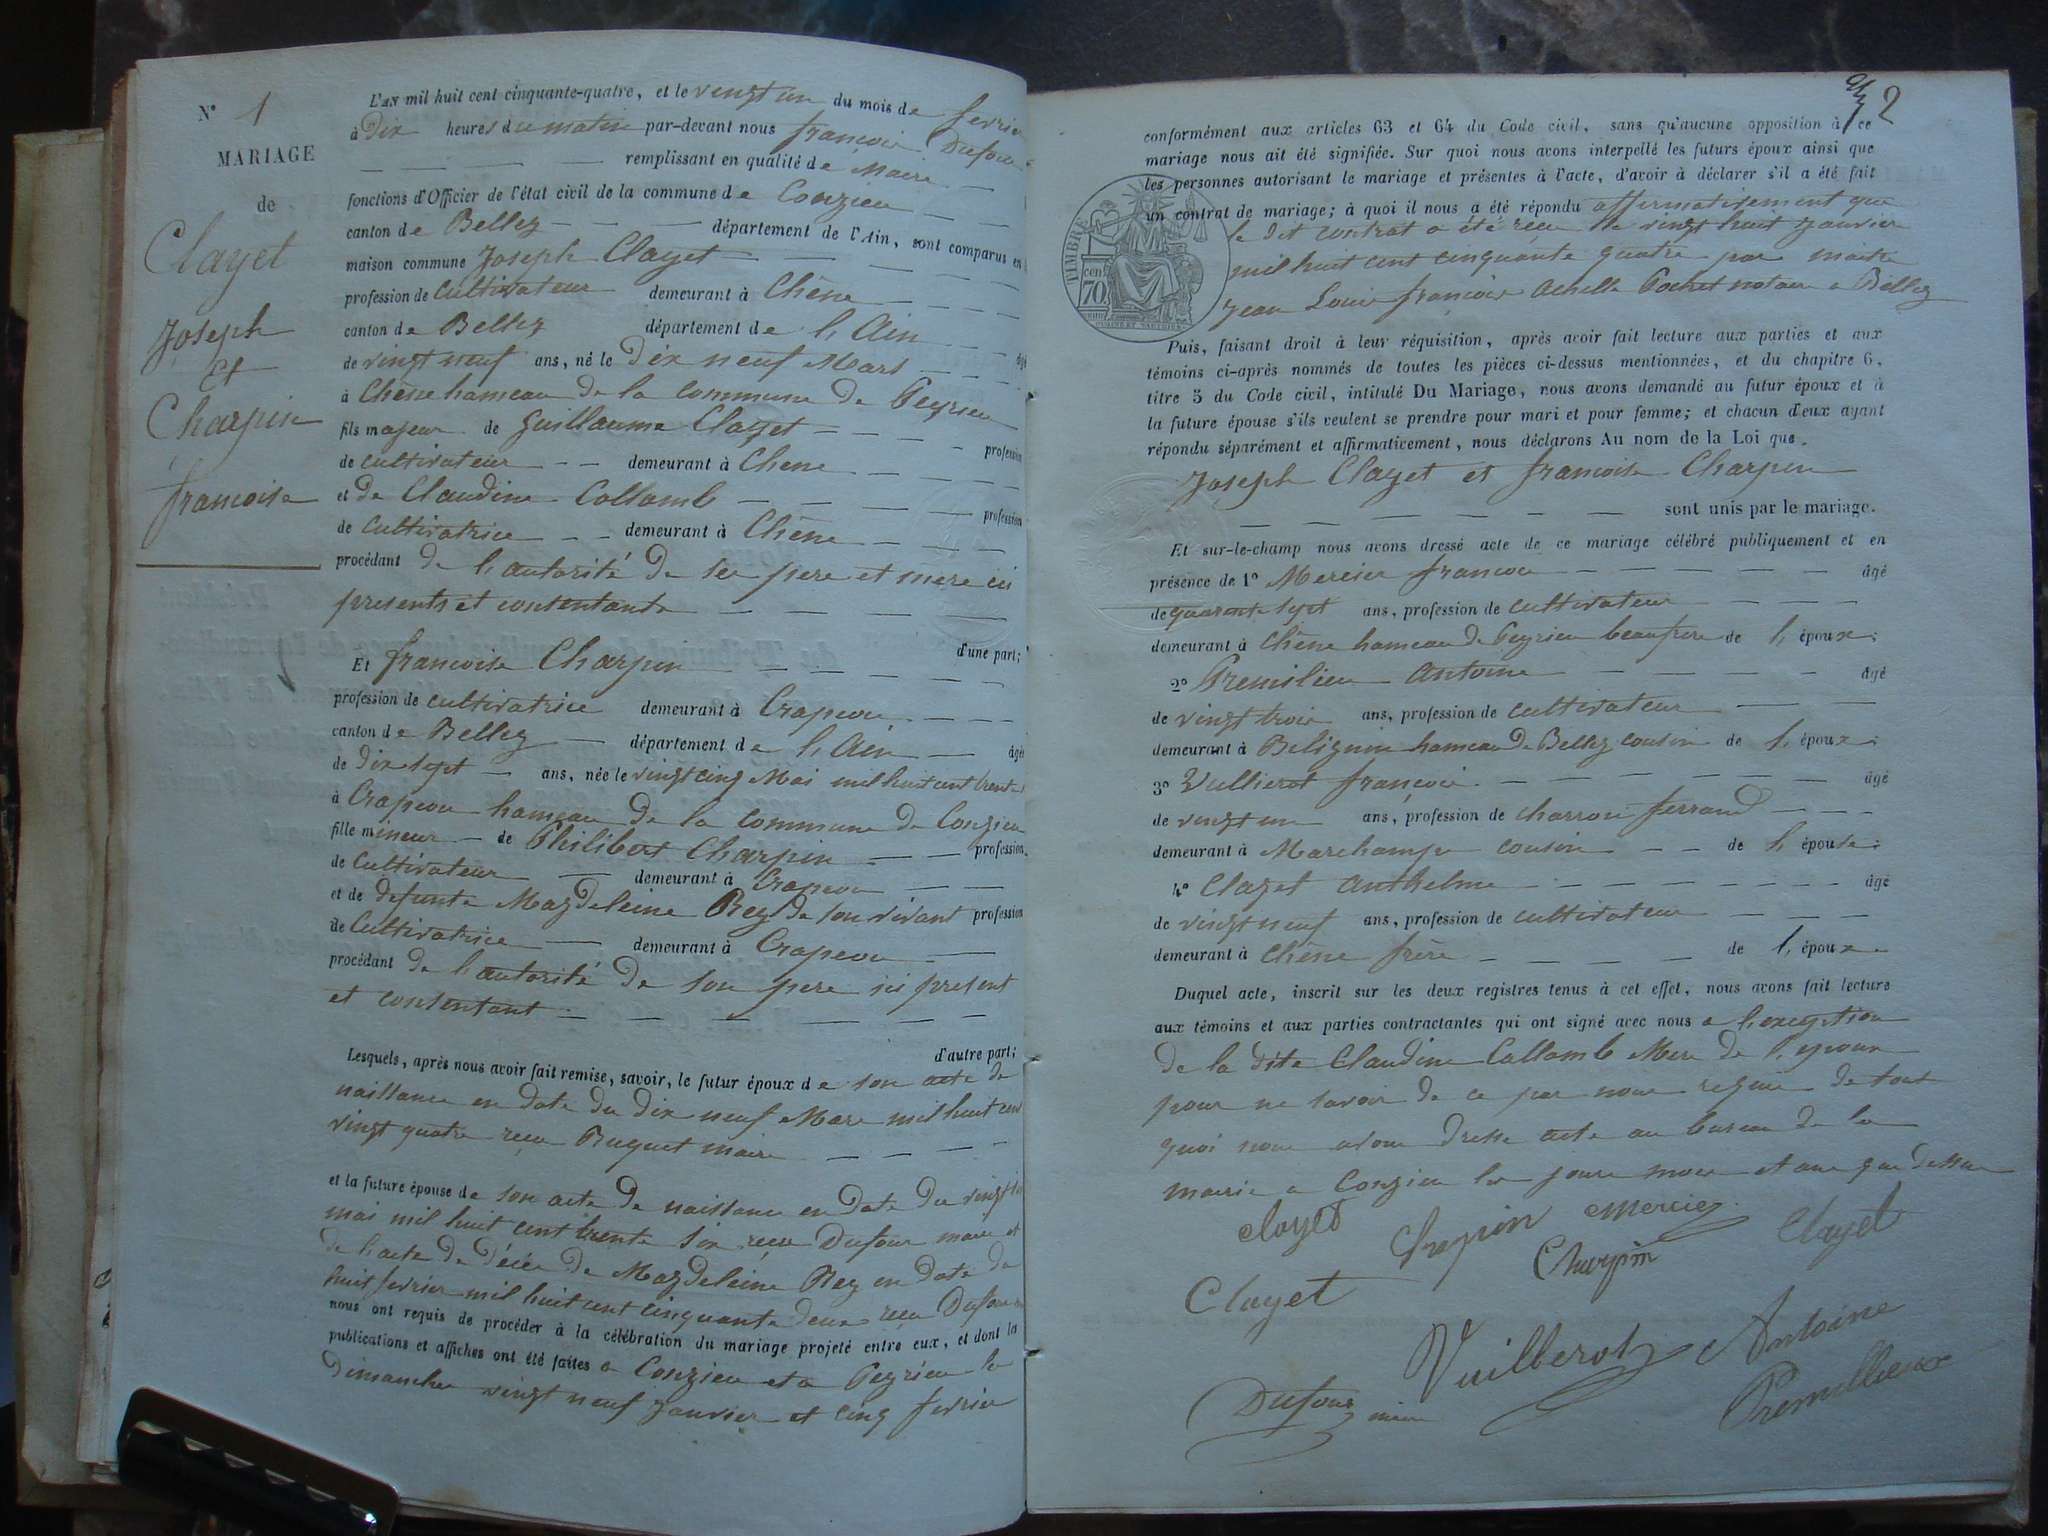 N° 1
MARIAGE
de
Clayet
Joseph
et
Charpin
francoise
L'AN mil huit cent cinquante-quatre, et le vingt un du mois de fevrier
à Dix heures du matin par-devant nous francois Dufour
remplissant en qualité de Maire
fonctions d'Officier de l'état civil de la commune de Conzieu
canton de Belley département de l'Ain, sont comparus en
maison commune Joseph Clayet
profession de cultivateur demeurant à Chêne
canton de Belley département de l'Ain
de vingt neuf ans, né le Dix neuf Mars
à Chêne hameau de la commune de Peyrieu
fils majeur de Guillaume Clayet profession
de cultivateur demeurant à Chêne
et de Claudine Collomb profession
de cultivatrice demeurant à Chêne
procédant de l'autorité de ses pere et mere ici
presents et consentants
d'une part;
Et francoise Charpin
profession de cultivatrice demeurant à Crapeou
canton de Belley département de l'Ain âgée
de dix sept ans, née le vingt cinq Mai mil huit cent trente
à Crapeou hameau de la commune de Conzieu
fille mineur de Philibert Charpin profession
de Cultivateur demeurant à Crapeou
et de defunte Magdeleine Rey de son vivant profession
de Cultivatrice demeurant à Crapeou
procédant de l'autorité de son pere ici present
et consentant
d'autre part;
Lesquels, après nous avoir fait remise, savoir, le futur époux de son acte de
naissance en date du dix neuf Mars mil huit cent
vingt quatre reçu Puguet maire
et la future épouse de son acte de naissance en date du vingt
mai mil huit cent trente six reçu Dufour maire et
de l'acte de décès de Magdeleine Rey en date du
huit fevrier mil huit cent cinquante deux reçu Dufour
nous ont requis de procéder à la célébration du mariage projeté entre eux, et dont la
publications et affiches ont été faites a Conzieu et a Peyrieu le
Dimanches vingt neuf janvier et cinq fevrier
2
conformément aux articles 63 et 64 du Code civil, sans qu'aucune opposition à ce
mariage nous ait été signifiée. Sur quoi nous avons interpellé les futurs époux ainsi que
les personnes autorisant le mariage et présentes à l'acte, d'avoir à déclarer s'il a été fait
un contrat de mariage; à quoi il nous a été répondu affirmativement que
le dit contrat a été reçu le vingt huit janvier
mil huit cent cinquante quatre par maitre
Jean Louis françois Achille Pochet notaire a Belley
TIMBRE
cen
70
Puis, faisant droit à leur réquisition, après avoir fait lecture aux parties et aux
témoins ci-après nommés de toutes les pièces ci-dessus mentionnées, et du chapitre 6,
titre 5 du Code civil, intitulé Du Mariage, nous avons demandé au futur époux et à
la future épouse s'ils veulent se prendre pour mari et pour femme; et chacun d'eux ayant
répondu séparément et affirmativement, nous déclarons Au nom de la Loi que,
Joseph Clayet et francoise Charpin
sont unis par le mariage.
Et sur-le-champ nous avons dressé acte de ce mariage célébré publiquement et en
présence de 1° Mercier francois âgé
de quarante sept ans, profession de cultivateur
demeurant à Chêne hameau de Peyrieu beaufrere de l'époux;
2° Premilieu Antoine âgé
de vingt trois ans, profession de cultivateur
demeurant à Belignin hameau de Belley cousin de l'époux;
3° Vullierot françois âgé
de vingt un ans, profession de charron ferrand
demeurant à Marchamp cousin de l'épouse;
4° Clayet Anthelme âgé
de vingt neuf ans, profession de cultivateur
demeurant à Chêne frère de l'époux
Duquel acte, inscrit sur les deux registres tenus à cet effet, nous avons fait lecture
aux témoins et aux parties contractantes qui ont signé avec nous a l'exception
de la dite Claudine Collomb Mere de l'epoux
pour ne savoir de ce par nous requis de tout
quoi nous avons dresse acte au bureau de la
mairie a Conzieu les jours mois et an que dessus
clayet Charpin Mercier Clayet
Clayet Charpin
Vuilberot Antoine
Dufour maire Premillieux